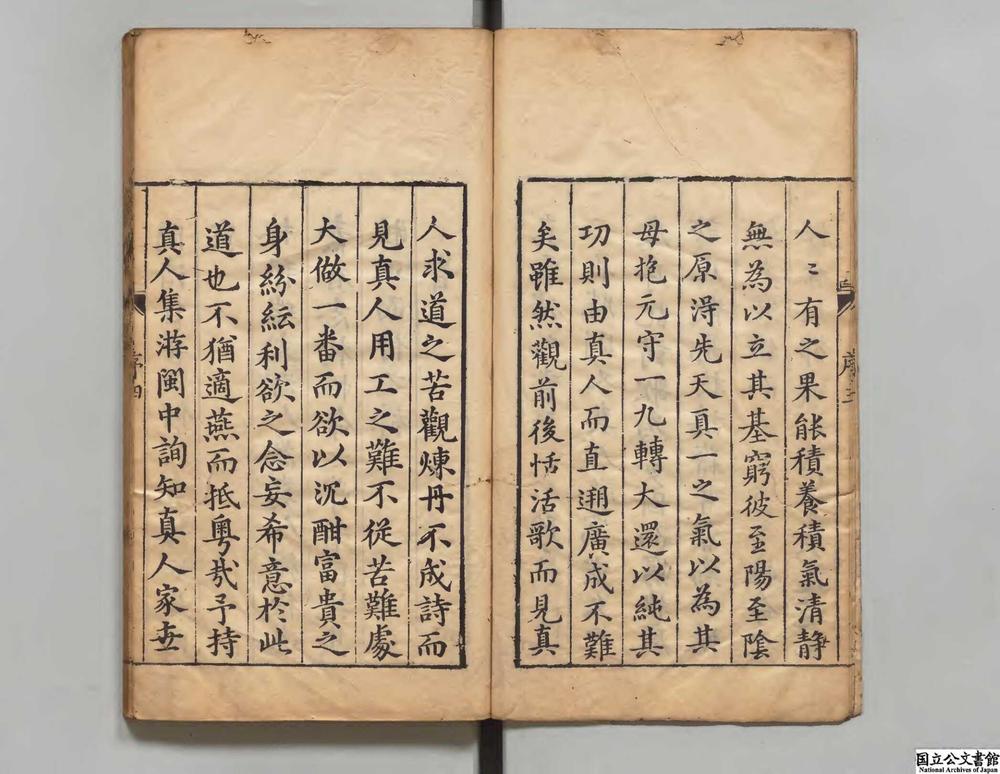 人〻有之果能積養積氣清靜
無為以立其基窮彼至陽至陰
之原淂先天真一之氣以為其
母抱元守一九轉大還以純其
功則由真人而直遡廣成不難
矣雖然觀前後恬活歌而見真
人求道之苦觀煉丹不成詩而
見真人用工之難不從苦難處
大做一番而欲以沉酣富貴之
身紛紜利欲之念妄希意於此
道也不猶適燕而抵粵㢤予持
真人集游閩中詢知真人家世
序四
国立公文書館
National Archives of Japan